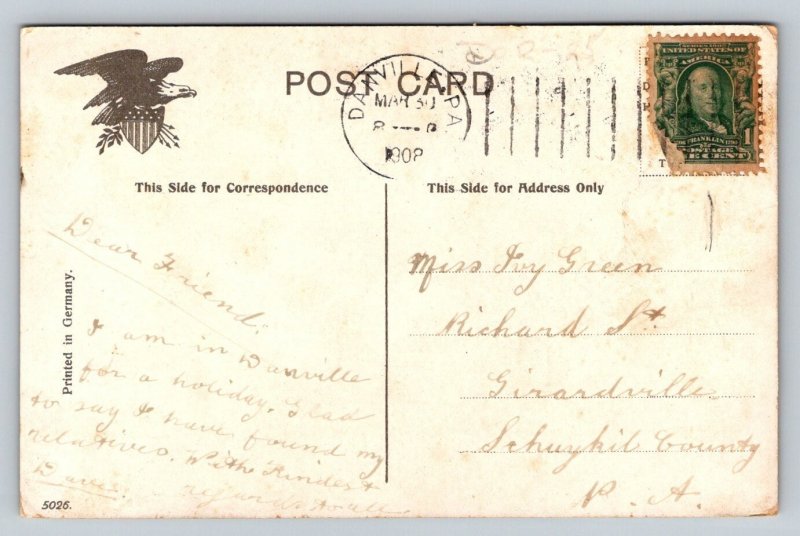 POST CARD
DANVILLE, PA
MAR 30
1908
SERIES 1902
UNITED STATES OF
AMERICA
FRANKLIN
POSTAGE
1 ONE CENT
This Side for Correspondence
This Side for Address Only
Dear Friend,
I am in Danville
for a holiday. Glad
to say I have found my
relatives. With Kindest
regards to all
Miss Ivy Green
Richard St
Girardville
Schuykil County
P. A.
Printed in Germany.
5026.